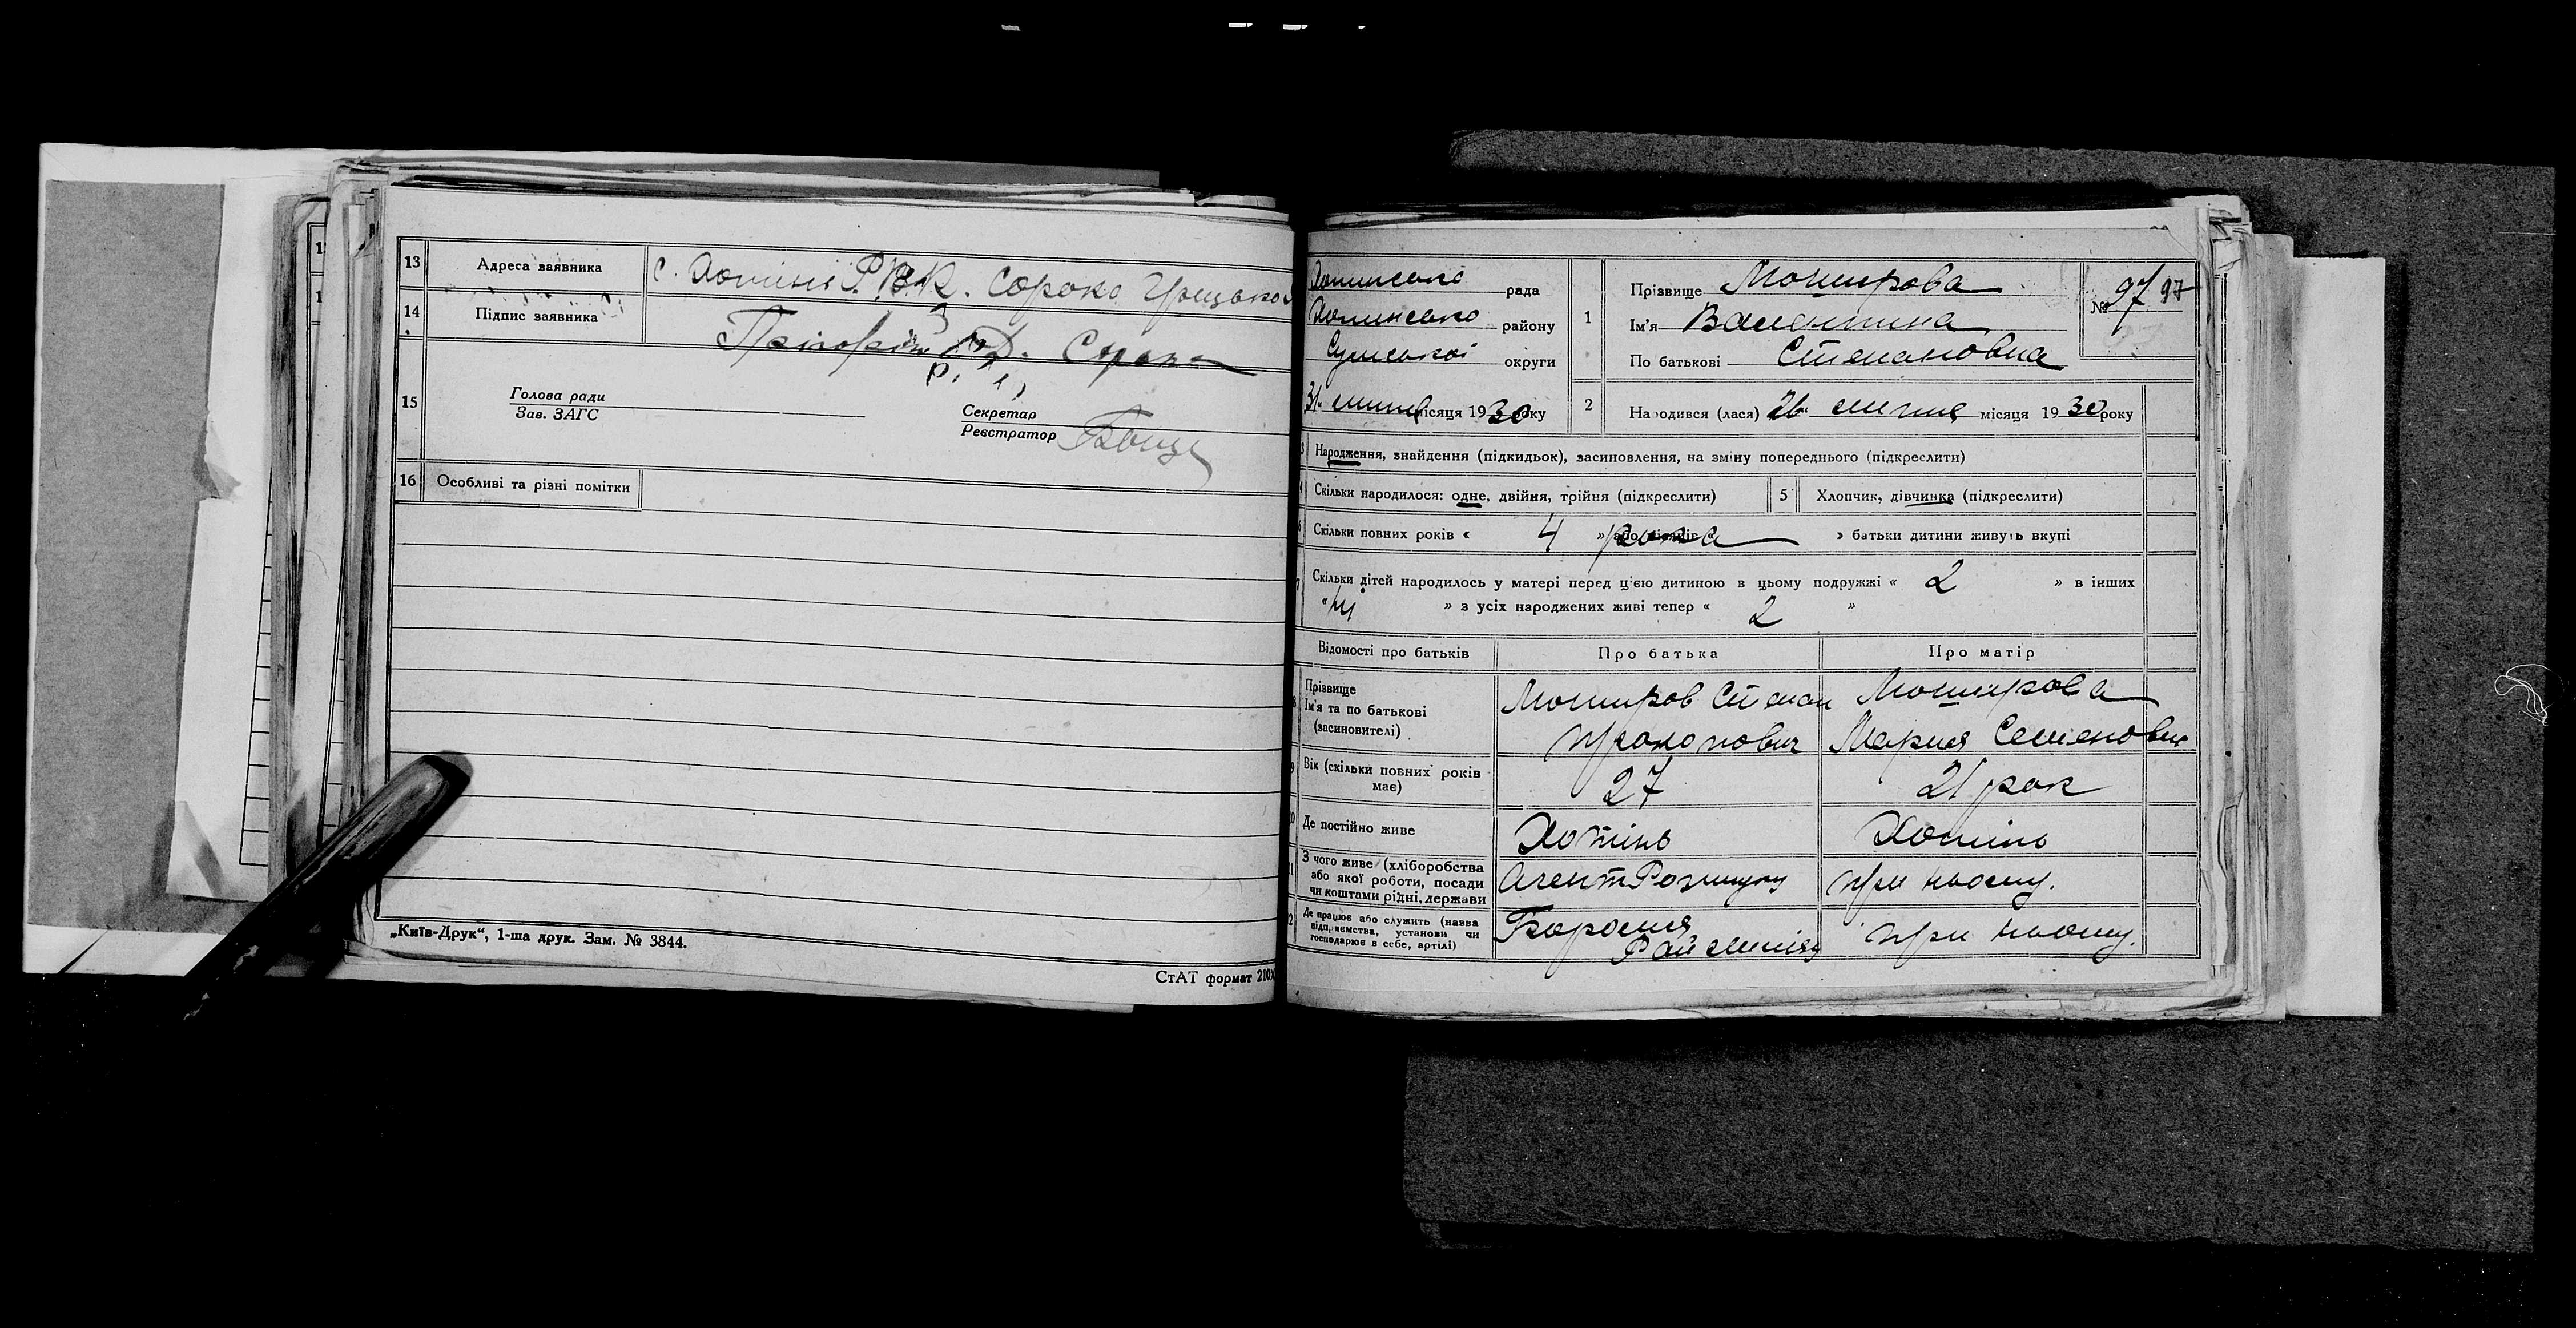 13 Адреса заявника с. Хотінь Р.В.К. Сорока Грицько
14 Підпис заявника
15 Голова ради
Зав. ЗАГС
Секретар
Реєстратор
16 Особливі та різні помітки
„Київ-Друк“, 1-ша друк. Зам. № 3844.
СтАТ формат 210
Хотинсько рада
Хотинсько району
Сумської округи
31 липня місяця 1930 року
1 Прізвище Моширова
Ім'я Валентина
По батькові Степановна
№ 97 97
2 Народився (лася) 26 липня місяця 1930 року
3 Народження, знайдення (підкидьок), засиновлення, на зміну попереднього (підкреслити)
4 Скільки народилося: одне, двійня, трійня (підкреслити)
5 Хлопчик, дівчинка (підкреслити)
6 Скільки повних років « 4 » або місяців рока » батьки дитини живуть вкупі
7 Скільки дітей народилось у матері перед цією дитиною в цьому подружжі « 2 » в інших
« ні » з усіх народжених живі тепер « 2 »
Відомості про батьків Про батька Про матір
8 Прізвище
Ім'я та по батькові
(засиновителі)
Моширов Степан
Прокопович
Моширова
Мария Семеновна
9 Вік (скільки повних років
має)
27
21 рок
10 Де постійно живе Хотінь Хотінь
11 З чого живе (хліборобства
або якої роботи, посади
чи коштами рідні, держави
Агент Розшуку
при ньому.
12 Де працює або служить (назва
підприємства, установи чи
господарює в себе, артілі)
Рай міліц
при ньому.